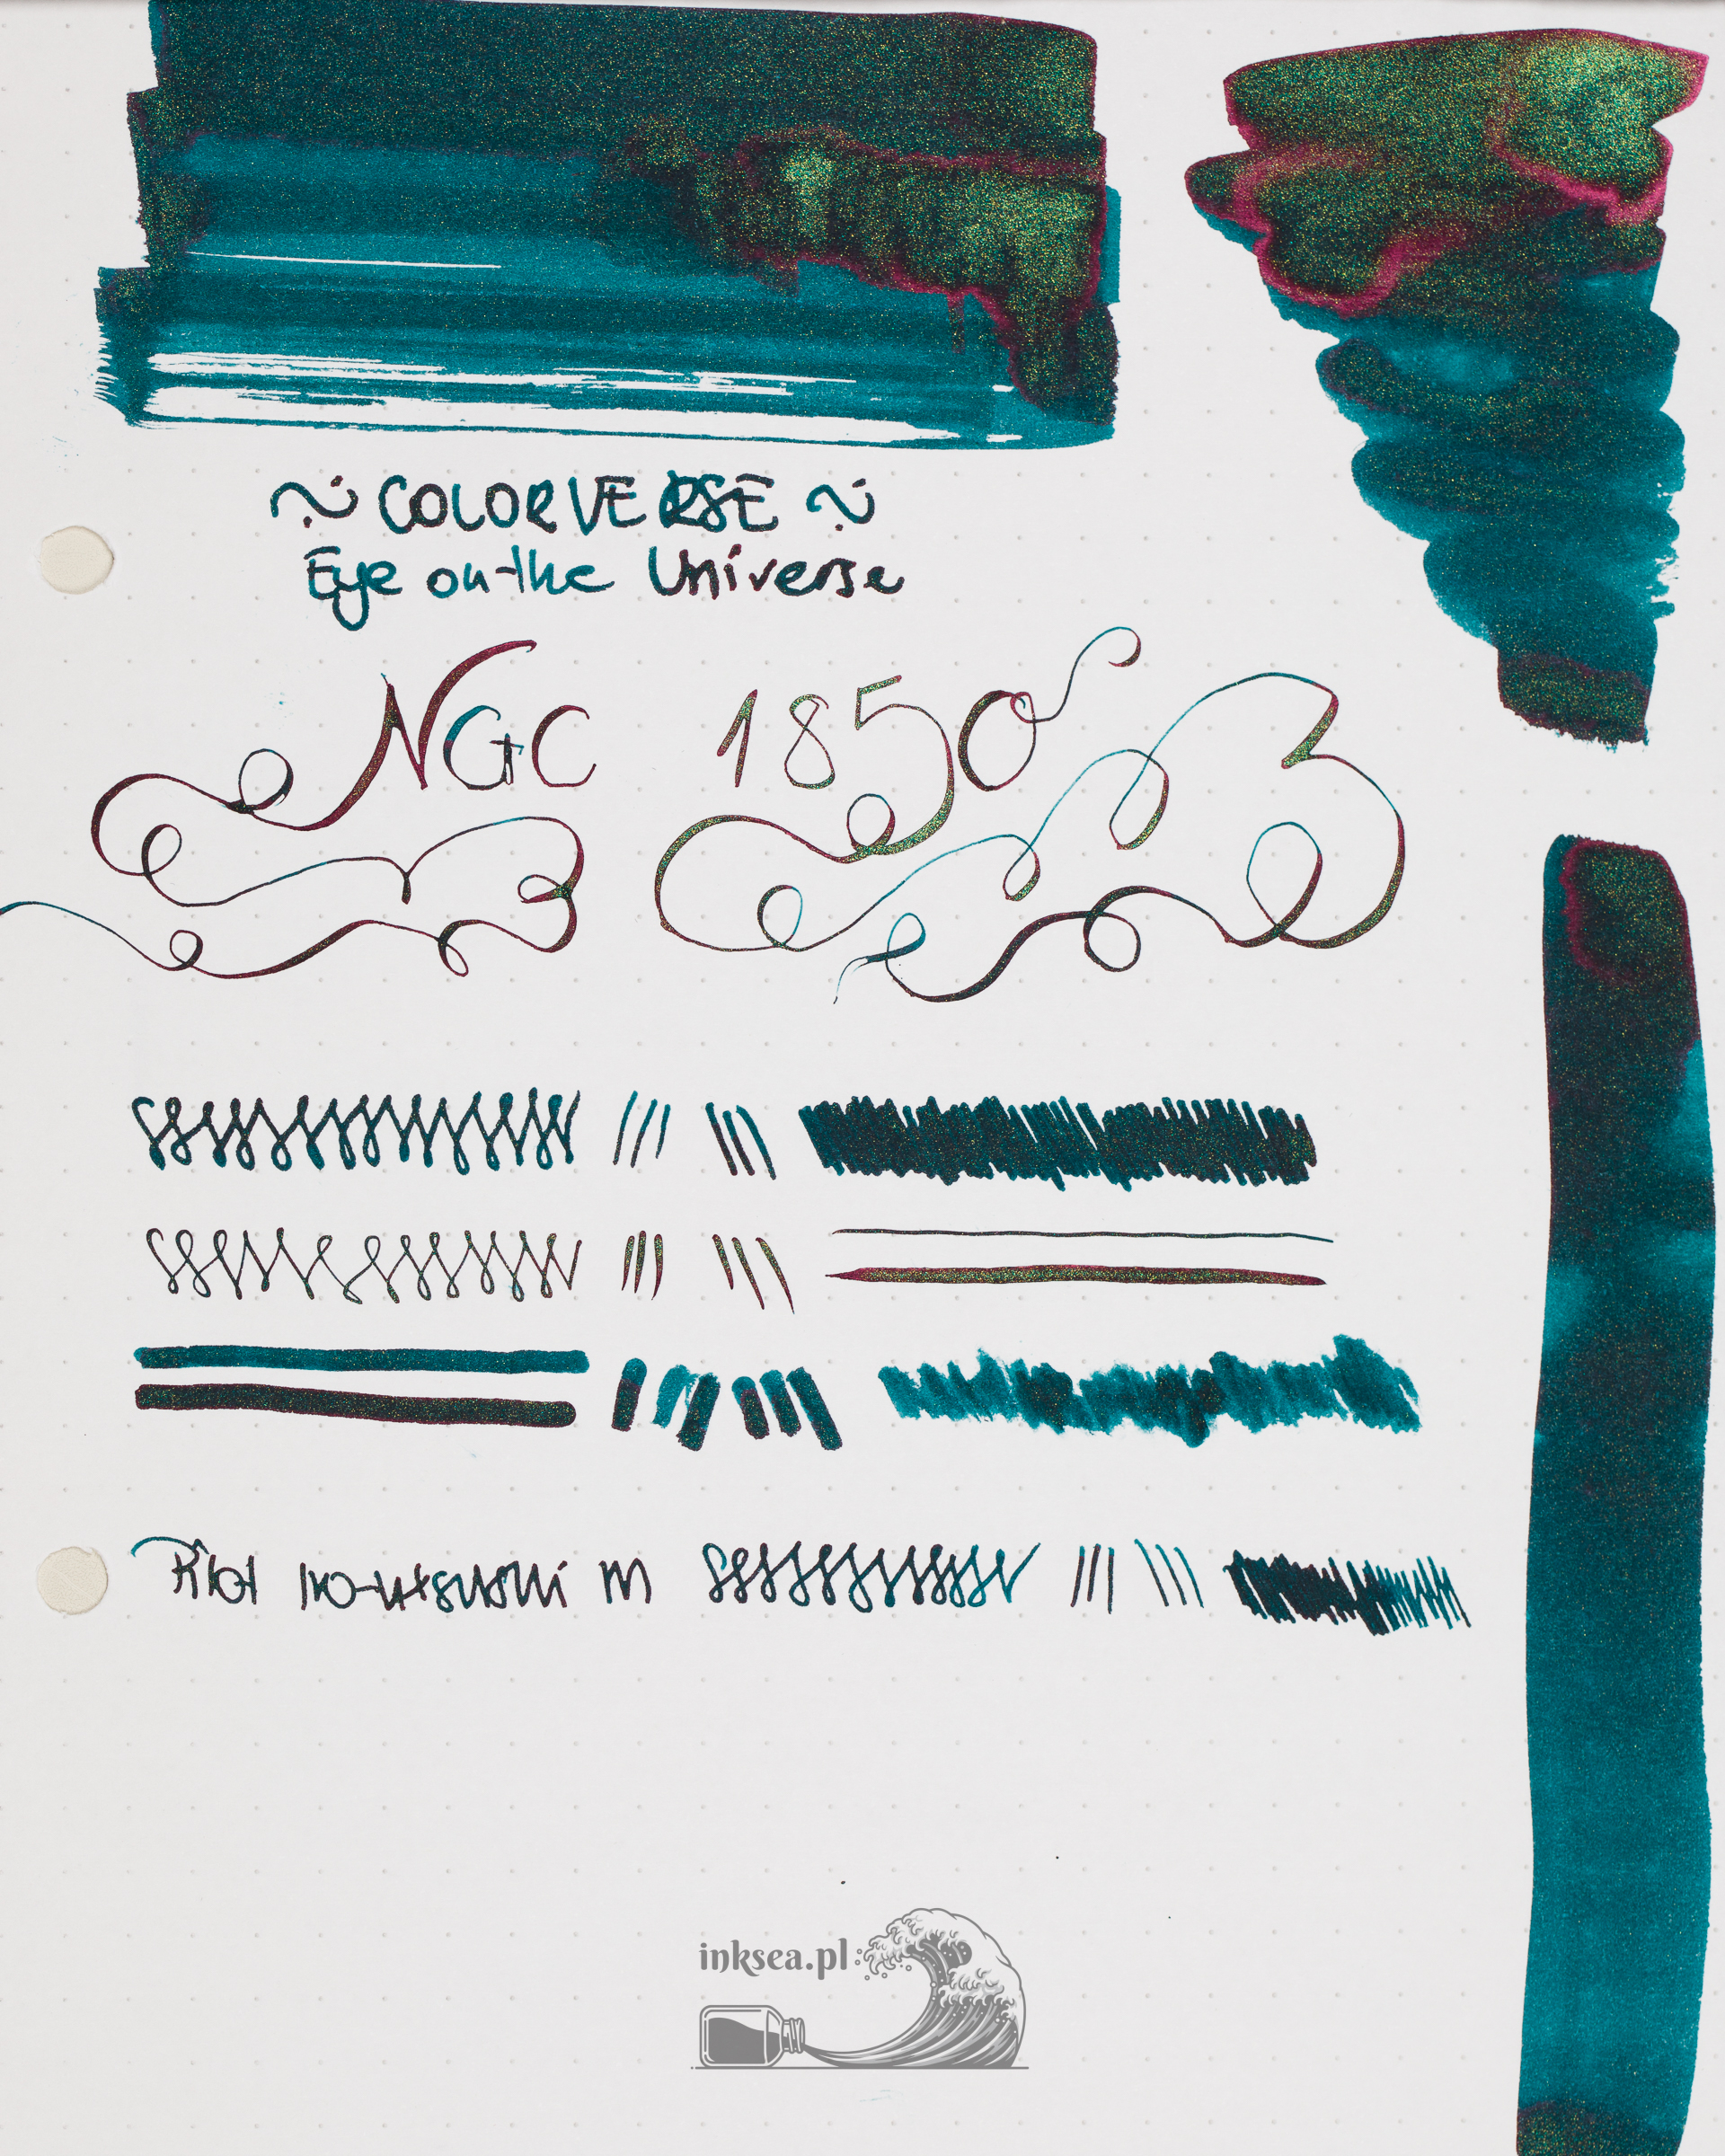 ~ COLORVERSE ~
Eye on the Universe
NGC 1850
Pilot Iro-utsushi M
inksea.pl